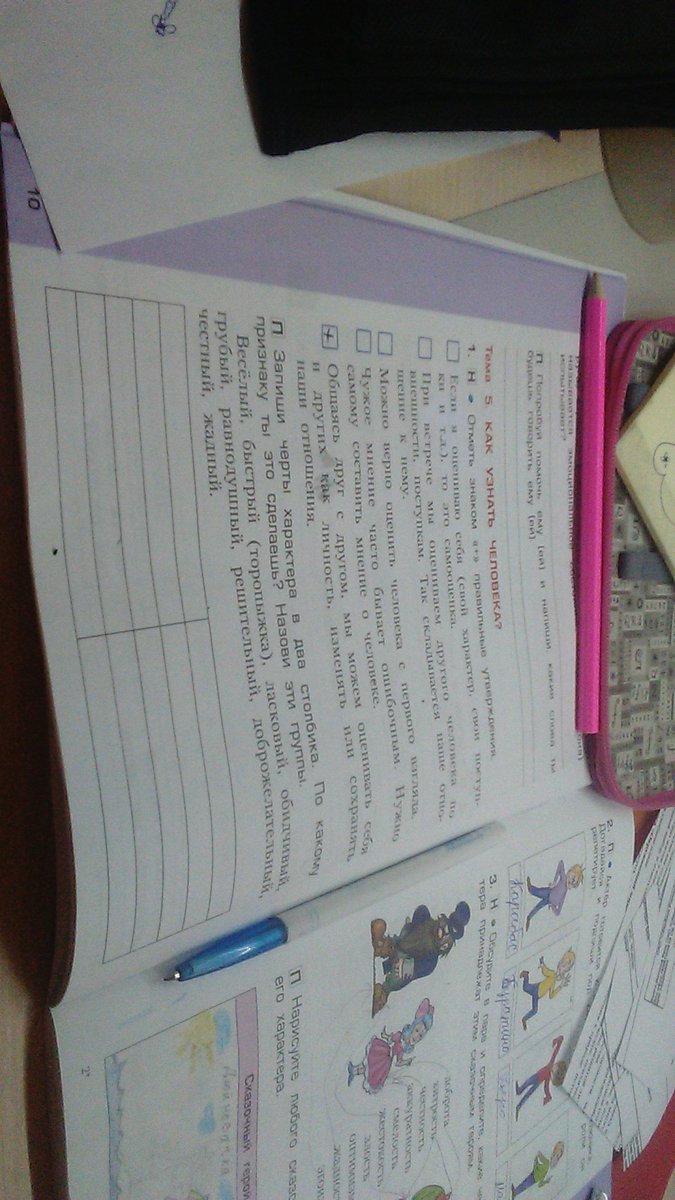 называется эмоциональное
испытывает?
П Попробуй помочь ему (ей) и напиши, какие слова ты
будешь говорить ему (ей).
Тема 5 КАК УЗНАТЬ ЧЕЛОВЕКА?
1. Н • Отметь знаком «+» правильные утверждения.
Если я оцениваю себя (свой характер, свои поступ-
ки и т.д.), то это самооценка.
При встрече мы оцениваем другого человека по
внешности, поступкам. Так складывается наше отно-
шение к нему.
Можно верно оценить человека с первого взгляда.
Чужое мнение часто бывает ошибочным. Нужно
самому составить мнение о человеке.
+ Общаясь друг с другом, мы можем оценивать себя
и других как личность, изменять или сохранять
наши отношения.
П Запиши черты характера в два столбика. По какому
признаку ты это сделаешь? Назови эти группы.
Весёлый, быстрый (торопыжка), ласковый, обидчивый,
грубый, равнодушный, решительный, доброжелательный,
честный, жадный.
10
2. П • Актёр готовится
Догадайся и подпиши
репетирует
Карабас
Буратино
3. Н • Обсудите в паре и определите, какие
тера принадлежат этим сказочным героям.
доброта
хитрость
честность
аккуратность
смелость
жестокость
злость
П Нарисуйте любого
его характера.
Сказочный герой